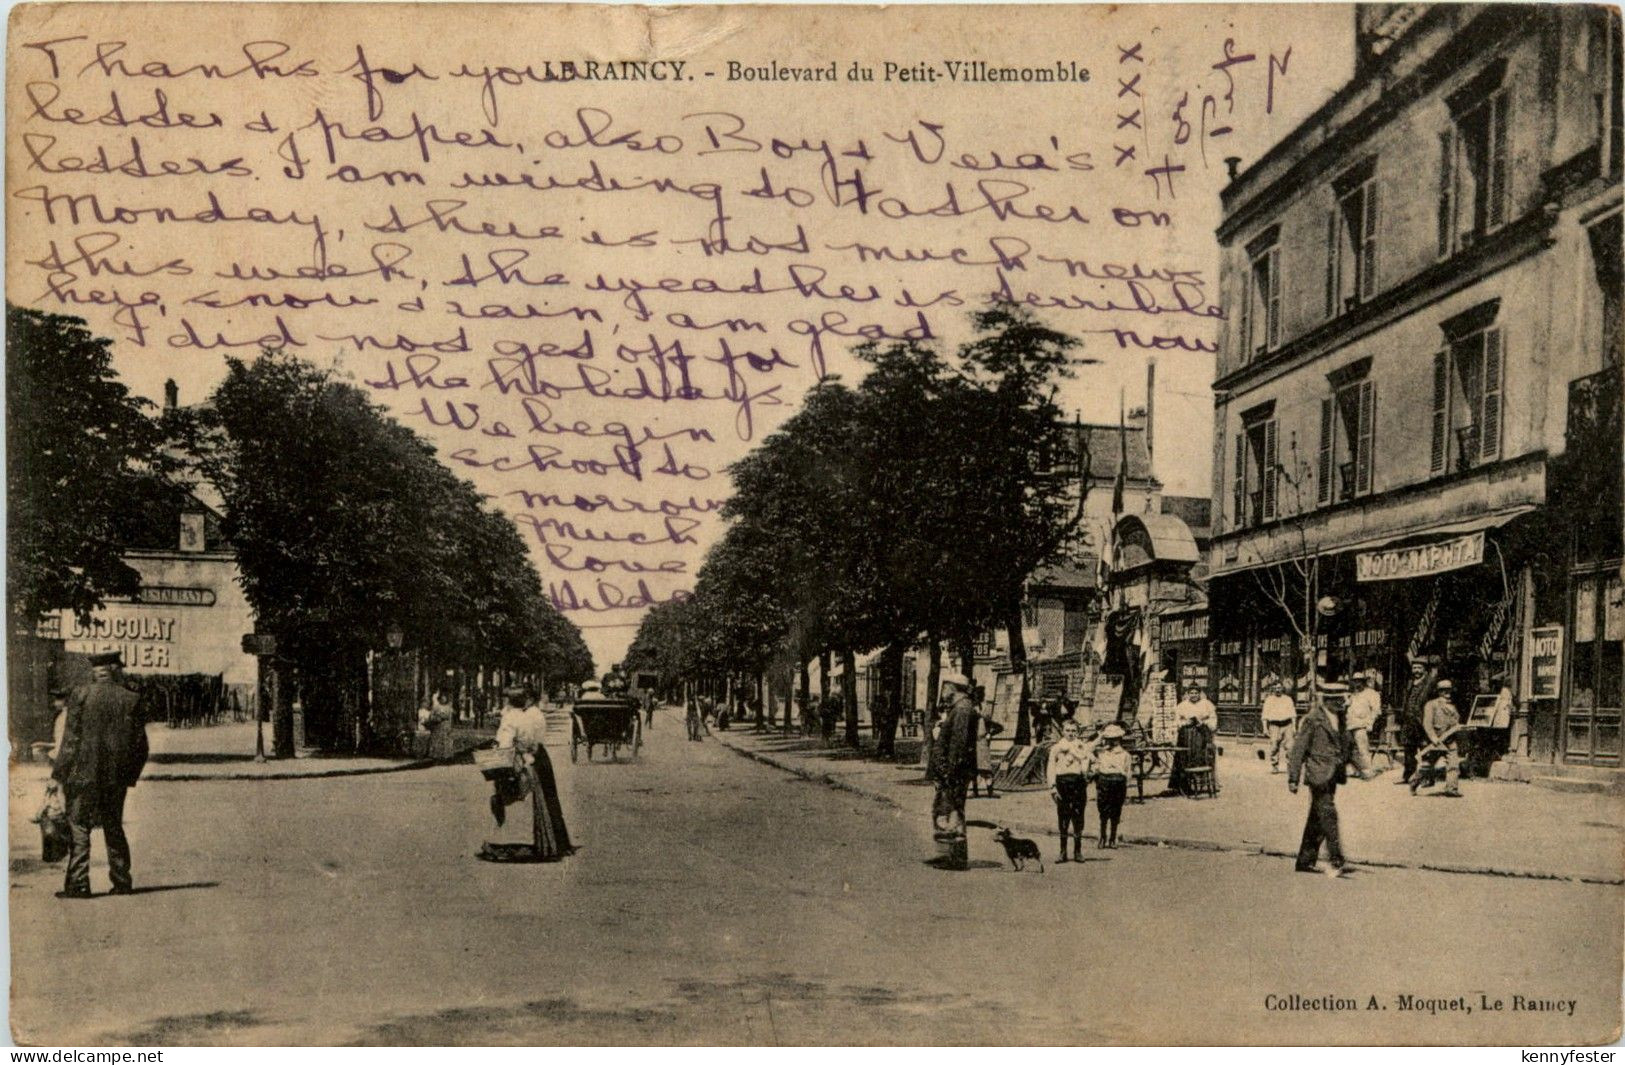 LE RAINCY. - Boulevard du Petit-Villemomble
Thanks for your
letter & paper, also Boy & Vera's
letters. I am writing to Father on
Monday, there is not much news
this week, the weather is terrible
here, snow & rain, I am glad now
I did not get off for
the holidays.
We begin
school to
morrow
Much
love
Hilda
x x x x
+ for
RESTAURANT
CHOCOLAT
MENIER
MOTO-NAPHTA
MOTO
Collection A. Moquet, Le Raincy
www.delcampe.net
kennyfester